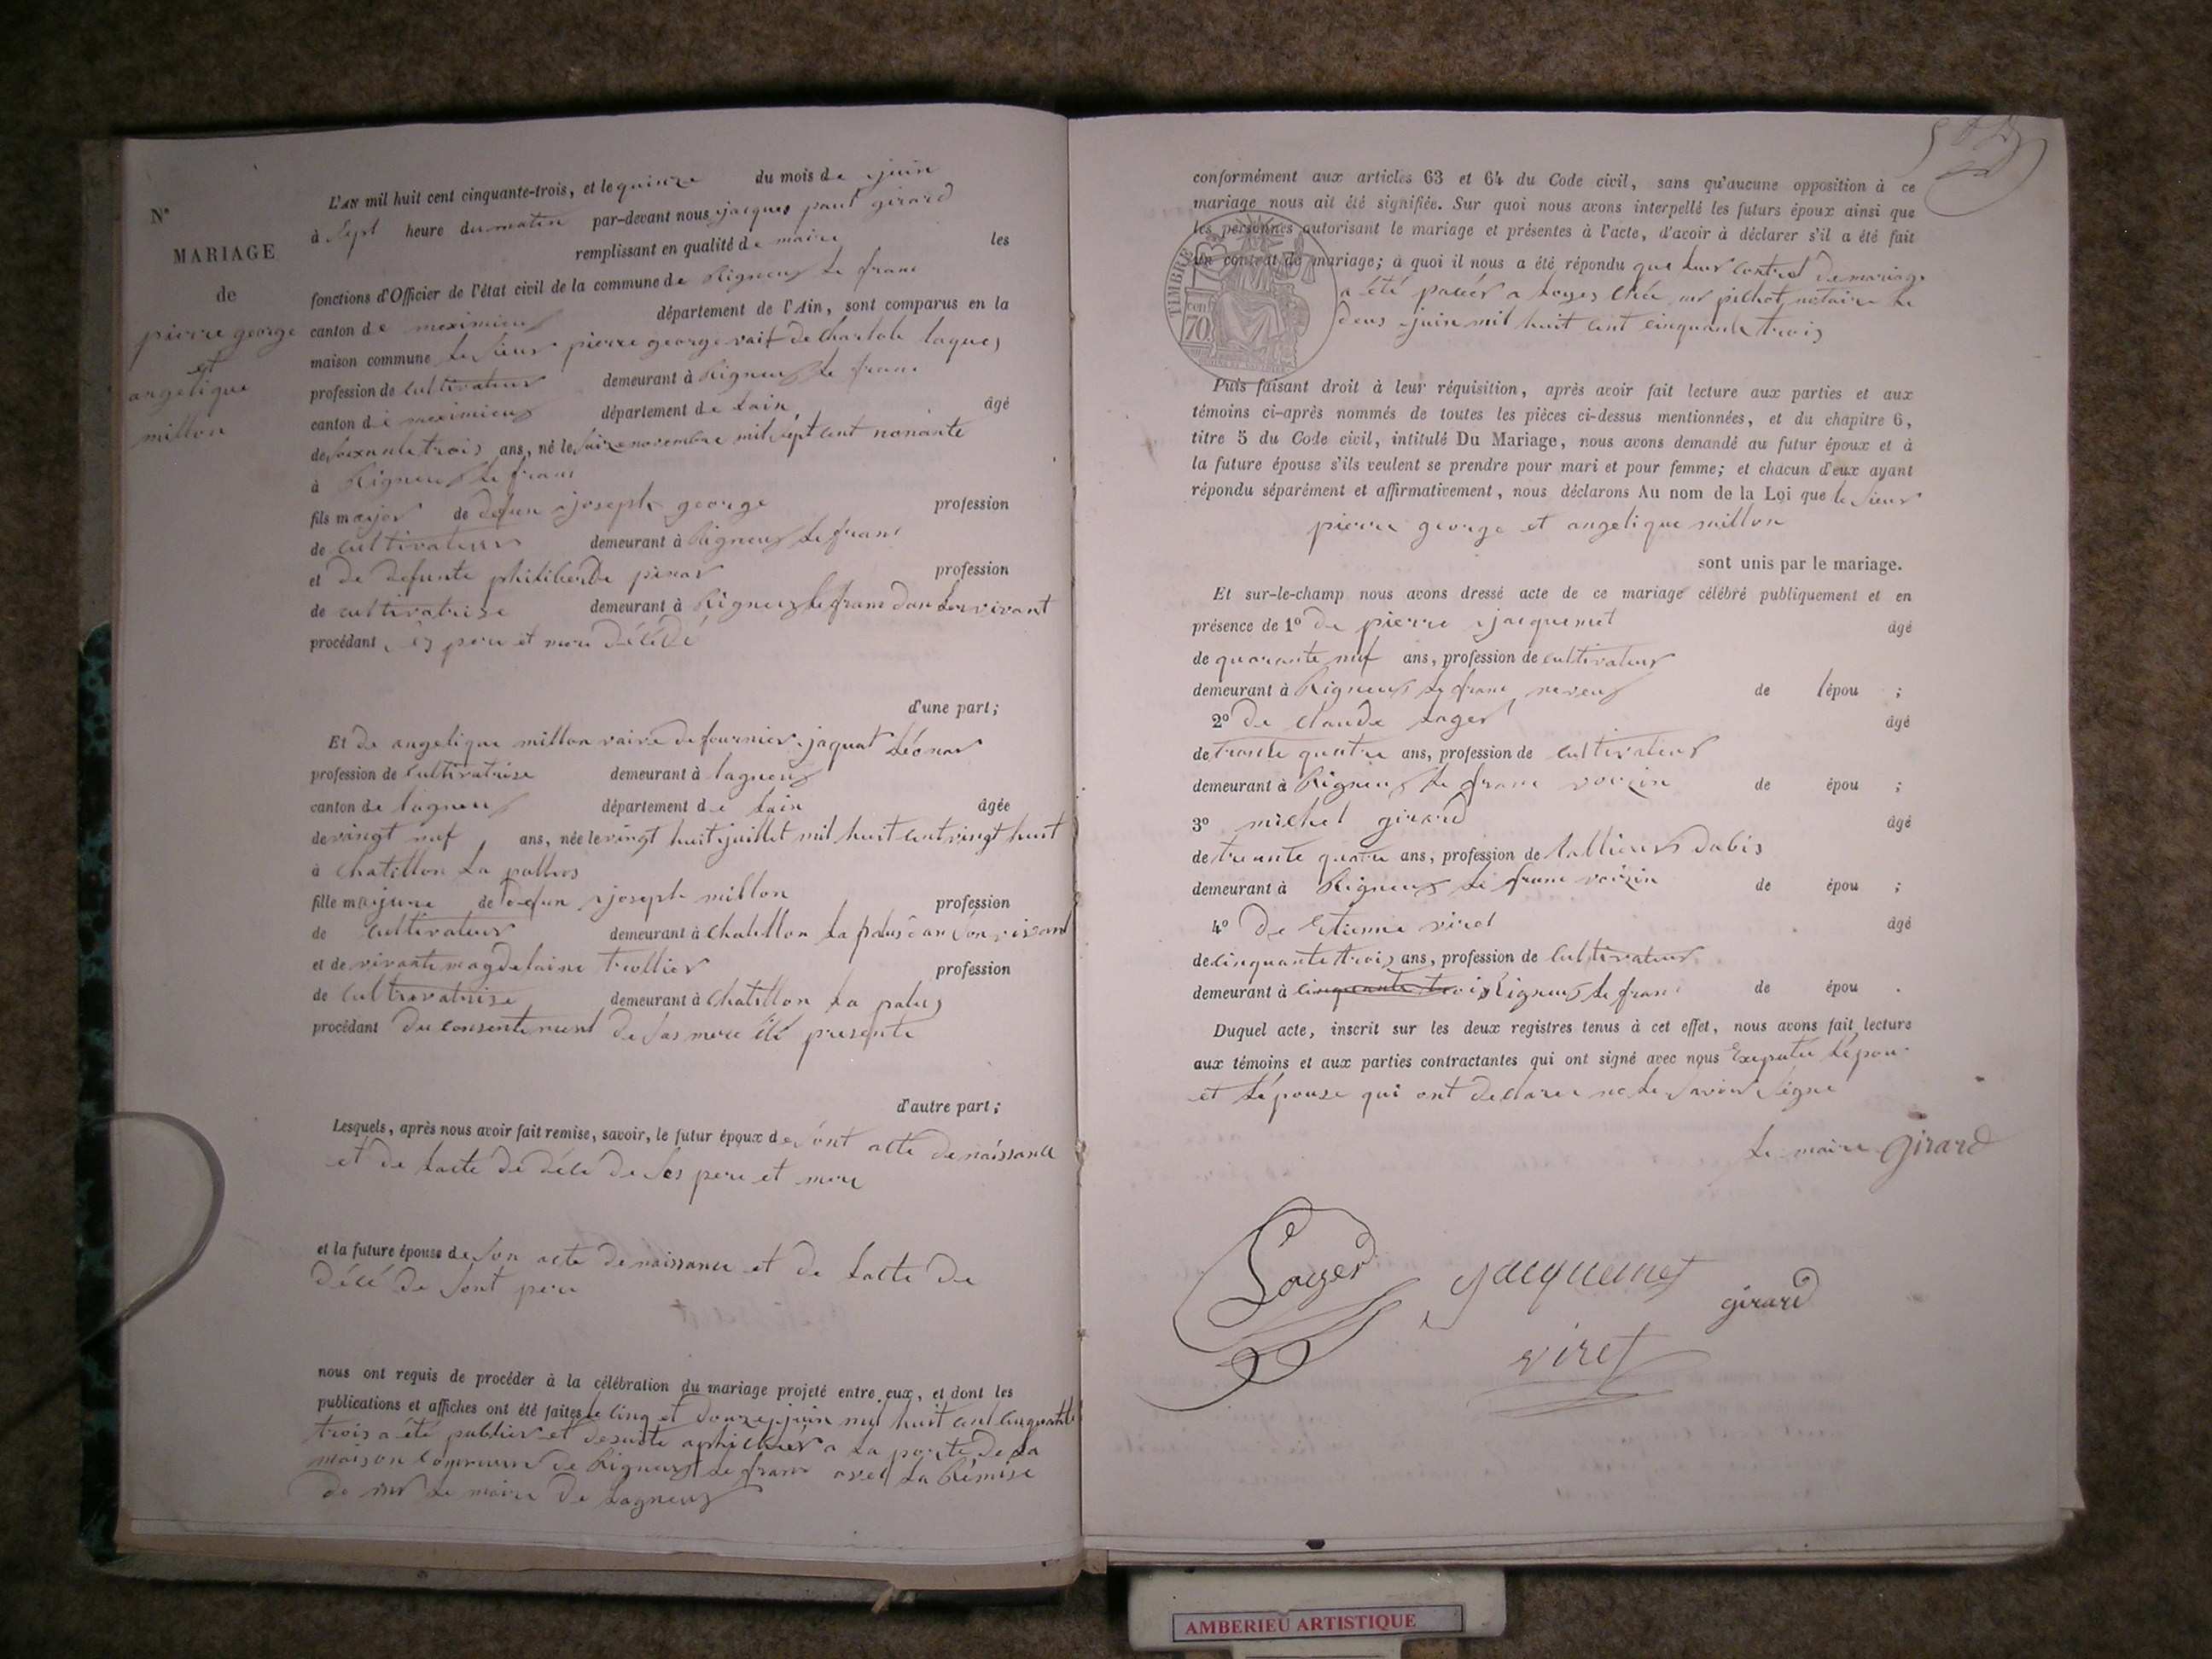 N°
MARIAGE
de
pierre george
et
angelique
millon
L'AN mil huit cent cinquante-trois, et le quinze du mois de juin
à sept heure du matin par-devant nous jacques paul girard
remplissant en qualité de maire les
fonctions d'Officier de l'état civil de la commune de Rigneux le franc
canton de meximieux département de l'Ain, sont comparus en la
maison commune le sieur pierre george vaif de Charlote laques
profession de cultivateur demeurant à Rigneux le franc
canton de meximieux département de lain âgé
de soixante trois ans, né le novembre mil sept cent nonante
à Rigneux le franc
fils major de defun joseph george profession
de cultivateur demeurant à Rigneux le franc
et de defunte philiberde profession
de cultivatrise demeurant à Rigneux le franc dan leur vivant
procédant ses pere et mere décédé
d'une part;
Et de angelique millon vaive de fournier jaquat Léonar
profession de cultivatrise demeurant à lagneux
canton de lagneux département de lain âgée
de vingt nuf ans, née le vingt huit juillet mil huit cent vingt huit
à Chatillon la pallus
fille majure de defun joseph millon profession
de cultivateur demeurant à Chatillon la palus dan son vivant
et de vivante magdelaine trollier profession
de cultivatrise demeurant à Chatillon la palus
procédant du consentement de sas mere ici presente
d'autre part;
Lesquels, après nous avoir fait remise, savoir, le futur époux de sont acte de naissance
et de lacte de décé de ses pere et mere
et la future épouse de son acte de naissance et de lacte de
décé de sont pere
nous ont requis de procéder à la célébration du mariage projeté entre eux, et dont les
publications et affiches ont été faites le cinq et douze juin mil huit cent cinquante
trois a été publier et desuite a la porte de la
maison commune de Rigneux le franc avec la Rémise
de mr le maire de Lagneux
conformément aux articles 63 et 64 du Code civil, sans qu'aucune opposition à ce
mariage nous ait été signifiée. Sur quoi nous avons interpellé les futurs époux ainsi que
les personnes autorisant le mariage et présentes à l'acte, d'avoir à déclarer s'il a été fait
un contrat de mariage; à quoi il nous a été répondu que leur contrat de mariage
a été passer a loyes chée mr pichot notaire le
deux juin mil huit cent cinquante trois
TIMBRE
70
Puis faisant droit à leur réquisition, après avoir fait lecture aux parties et aux
témoins ci-après nommés de toutes les pièces ci-dessus mentionnées, et du chapitre 6,
titre 5 du Code civil, intitulé Du Mariage, nous avons demandé au futur époux et à
la future épouse s'ils veulent se prendre pour mari et pour femme; et chacun d'eux ayant
répondu séparément et affirmativement, nous déclarons Au nom de la Loi que le sieur
pierre george et angelique millon
sont unis par le mariage.
Et sur-le-champ nous avons dressé acte de ce mariage célébré publiquement et en
présence de 1° de pierre jacquemet âgé
de quarante nuf ans, profession de cultivateur
demeurant à Rigneux le franc neveux de lépou ;
2° de claude Loger âgé
de trante quatre ans, profession de cultivateur
demeurant à Rigneux le franc voizin de épou ;
3° michel girard âgé
de treante quatre ans, profession de tallieur dabis
demeurant à Rigneux le franc voizin de épou ;
4° de Etienne viret âgé
de cinquante trois ans, profession de cultivateur
demeurant à cinquante trois Rigneux le franc de épou .
Duquel acte, inscrit sur les deux registres tenus à cet effet, nous avons fait lecture
aux témoins et aux parties contractantes qui ont signé avec nous Exepter lépou
et lépouse qui ont declarer ne le savoir signe
Le maire Girard
Loger
Jacquemet
girard
viret
AMBERIEU ARTISTIQUE